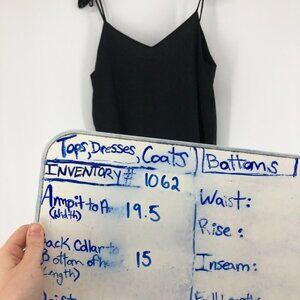 Tops, Dresses, Coats
INVENTORY # 1062
Armpit to A 19.5
(Width)
Back Collar to
Bottom of he 15
(Length)
Bottoms
Waist:
Rise:
Inseam: